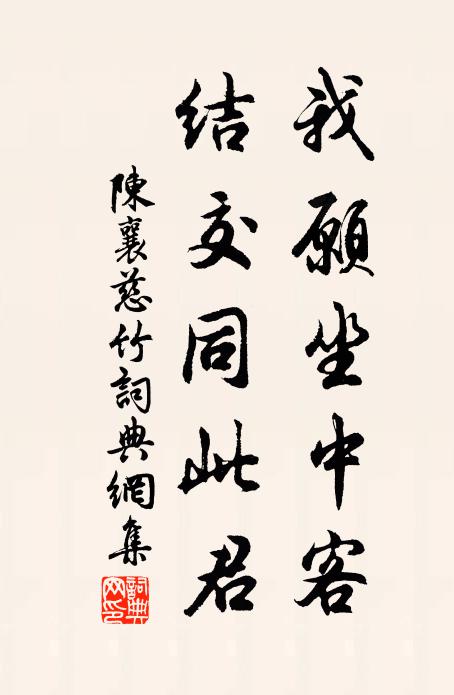 我願坐中客
結交同此君
陳襄慈竹詞典網集
詞典网印